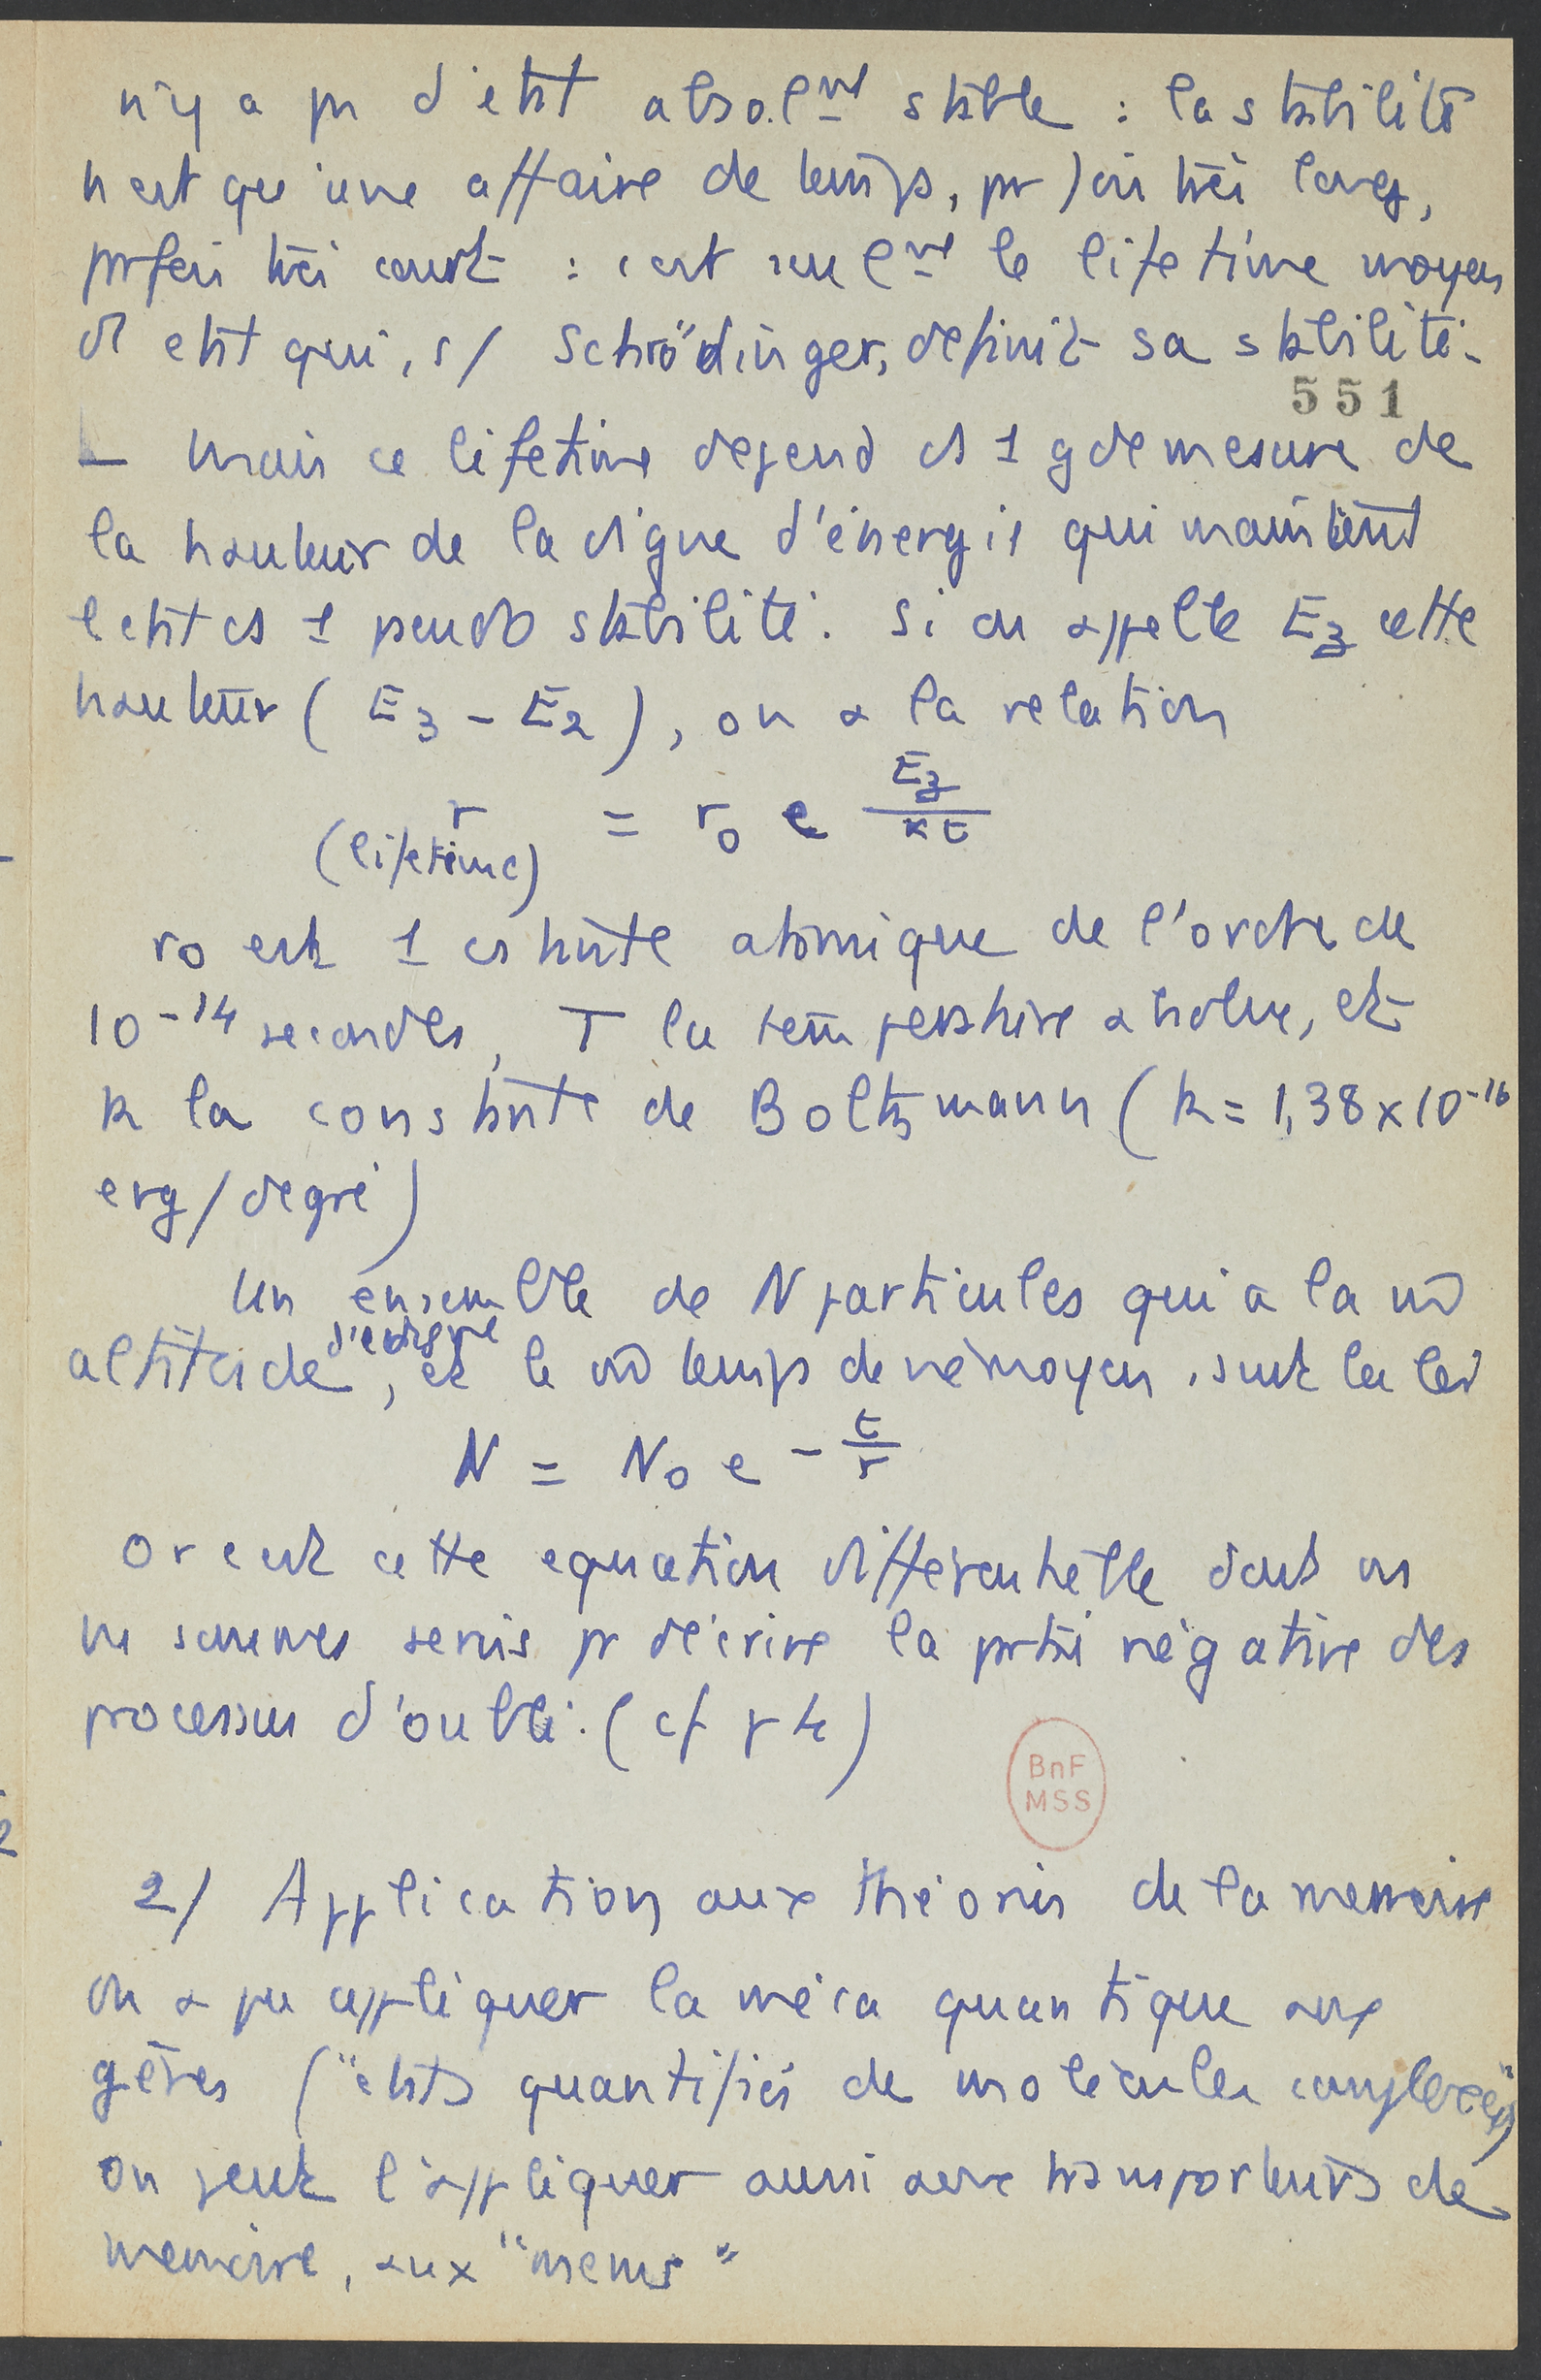 n'y a pr d'etat absol.mt stable : la stabilité
n'est qu'une affaire de temps, prfois très long,
prfois très court : c'est seulmt le lifetime moyen
d'etat qui, s/ Schrödinger, définit sa stabilité.
551
Mais ce lifetime depend ds 1 gde mesure de
la hauteur de la digue d'énergie qui maintient
l'etat ds 1 pseudo stabilité. Si on appelle E3 cette
hauteur ( E3 - E2 ), on a la relation
r = r0 e E3/kt
(lifetime)
r0 est 1 cstante atomique de l'ordre de
10-14 secondes, T la temperature absolue, et
k la constante de Boltzmann ( k = 1,38 x 10-16
erg/degré )
Un ensemble de N particules qui a la m̄
d'energie
altitude, et le m̄ temps de vie moyen, suit la loi
N = N0 e - t/r
Or c'est cette equation differentielle dont on
ne sommes servis pr décrire la partie négative des
processus d'oubli. ( cf
2/ Application aux théories de la memoire
On a pu appliquer la méca quantique aux
gènes ("etats quantifiés de molécules complexes")
on peut l'appliquer aussi aux transporteurs de
memoire, aux "mems"
BnF
MSS